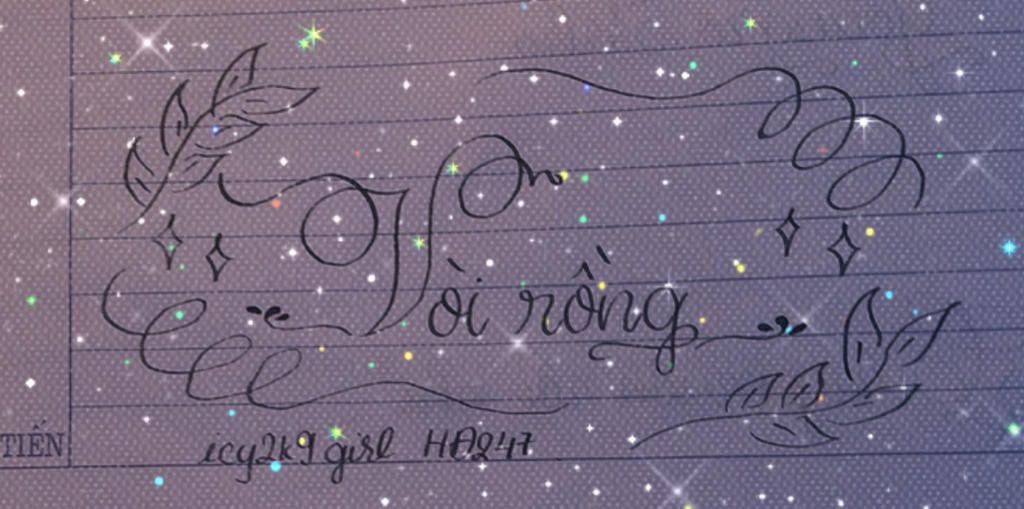 Vòi rồng
TIẾN
icy2k9 girl HA247